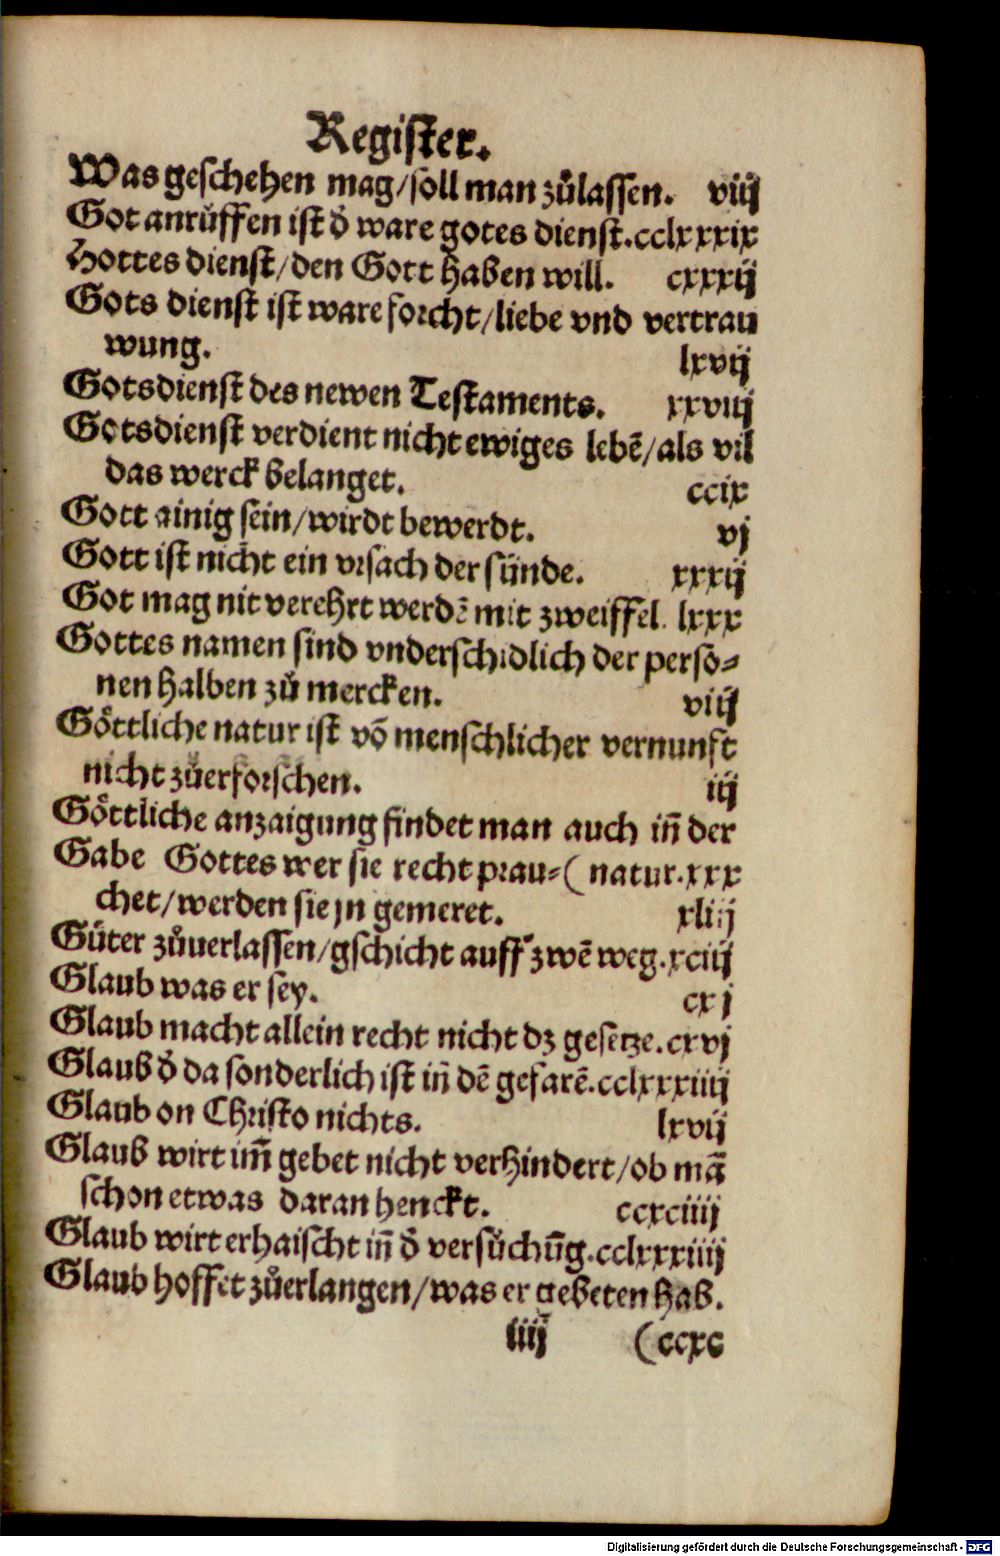 Register.
Was geschehen mag/soll man zůlassen. viij
Got anrůffen ist d̕ ware gotes dienst. cclxxxix
Hottes dienst/den Gott haben will. cxxxij
Gots dienst ist ware forcht/liebe vnd vertrau
wung. lxvij
Gotsdienst des newen Testaments. xxviij
Gotsdienst verdient nicht ewiges lebē/als vil
das werck belanget. ccix
Gott ainig sein/wirdt bewerdt. vj
Gott ist nicht ein vrsach der sünde. xxxij
Got mag nit verehrt werdē mit zweiffel. lxxx
Gottes namen sind vnderschidlich der perso⸗
nen halben zů mercken. viij
Göttliche natur ist vō menschlicher vernunft
nicht zůerforschen. iij
Göttliche anzaigung findet man auch iñ der
Gabe Gottes wer sie recht prau⸗ ( natur. xxx
chet/werden sie jn gemeret. xliij
Güter zůuerlassen/gschicht auff zwē weg. xciij
Glaub was er sey. cxj
Glaub macht allein recht nicht dz gesetze. cxvj
Glaub d̕ da sonderlich ist iñ dē gefarē. cclxxxiiij
Glaub on Christo nichts. lxvij
Glaub wirt im̄ gebet nicht verhindert/ob mā
schon etwas daran henckt. ccxciiij
Glaub wirt erhaischt iñ d̕ versůchūg. cclxxxiiij
Glaub hoffet zůerlangen/was er gebeten hab.
iiij (ccxc
Digitalisierung gefördert durch die Deutsche Forschungsgemeinschaft - DFG